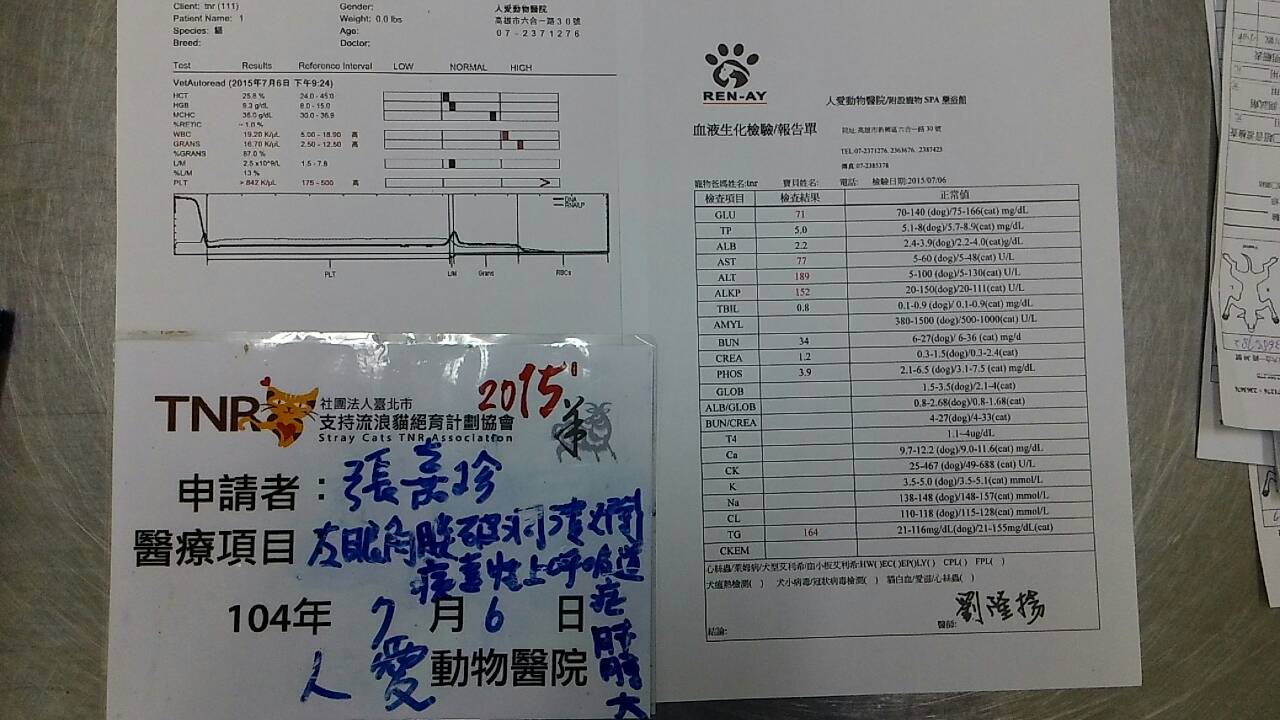 Client: tnr (111)
Patient Name: 1
Species: 貓
Breed:
Gender:
Weight: 0.0 lbs
Age:
Doctor:
人愛動物醫院
高雄市六合一路30號
07-2371276
Test Results Reference Interval LOW NORMAL HIGH
VetAutoread (2015年7月6日 下午9:24)
HCT 25.8 % 24.0 - 45.0
HGB 9.3 g/dL 8.0 - 15.0
MCHC 36.0 g/dL 30.0 - 36.9
%RETIC ~ 1.0 %
WBC 19.20 K/µL 5.00 - 18.90 高
GRANS 16.70 K/µL 2.50 - 12.50 高
%GRANS 87.0 %
L/M 2.5 x10^9/L 1.5 - 7.8
%L/M 13 %
PLT > 842 K/µL 175 - 500 高
DNA
RNA/LP
PLT L/M Grans RBCs
REN-AY
人愛動物醫院/附設寵物 SPA 薰浴館
血液生化檢驗/報告單
院址:高雄市新興區六合一路 30 號
TEL:07-2371276. 2363676 . 2387423
傳真:07-2385378
寵物爸媽姓名:tnr 寶貝姓名: 電話: 檢驗日期:2015/07/06
檢查項目 檢查結果 正常值
GLU 71 70-140 (dog)/75-166(cat) mg/dL
TP 5.0 5.1-8(dog)/5.7-8.9(cat) mg/dL
ALB 2.2 2.4-3.9(dog)/2.2-4.0(cat)g/dL
AST 77 5-60 (dog)/5-48(cat) U/L
ALT 189 5-100 (dog)/5-130(cat) U/L
ALKP 152 20-150(dog)/20-111(cat) U/L
TBIL 0.8 0.1-0.9 (dog)/ 0.1-0.9(cat) mg/dL
AMYL 380-1500 (dog)/500-1000(cat) U/L
BUN 34 6-27(dog)/ 6-36 (cat) mg/d
CREA 1.2 0.3-1.5(dog)/0.3-2.4(cat)
PHOS 3.9 2.1-6.5 (dog)/3.1-7.5 (cat) mg/dL
GLOB 1.5-3.5(dog)/2.1-4(cat)
ALB/GLOB 0.8-2.68(dog)/0.8-1.68(cat)
BUN/CREA 4-27(dog)/4-33(cat)
T4 1.1~4ug/dL
Ca 9.7-12.2 (dog)/9.0-11.6(cat) mg/dL
CK 25-467 (dog)/49-688 (cat) U/L
K 3.5-5.0 (dog)/3.5-5.1(cat) mmol/L
Na 138-148 (dog)/148-157(cat) mmol/L
CL 110-118 (dog)/115-128(cat) mmol/L
TG 164 21-116mg/dL(dog)/21-155mg/dL(cat)
CKEM
心絲蟲/萊姆病/犬型艾利希/血小板艾利希:HW( )EC( )EP( )LY( ) CPL( ) FPL( )
犬瘟熱檢測( ) 犬小病毒/冠狀病毒檢測( ) 貓白血/愛滋/心絲蟲( )
醫師: 劉隆揚
結論:
TNR
社團法人臺北市
支持流浪貓絕育計劃協會
Stray Cats TNR Association
2015
羊
申請者：張喜珍
醫療項目 左眼角膜破洞潰爛
疾患性上呼吸道
疤
腫
大
104年 7月 6日
人愛動物醫院